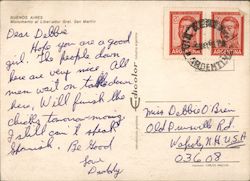 BUENOS AIRES
Monumento al Libertador Gral. San Martín
Dear Debbie
Hope you are a good
girl. The people down
here are very nice. All
men wait on tables down
here. Will finish the
tomorrow morning
I still can't speak
Spanish. Be Good
Love
Daddy
Edicolor
ARGENTINA
ARGENTINA
Miss Debbie O'Brien
Old Rd
N.H. USA
03608